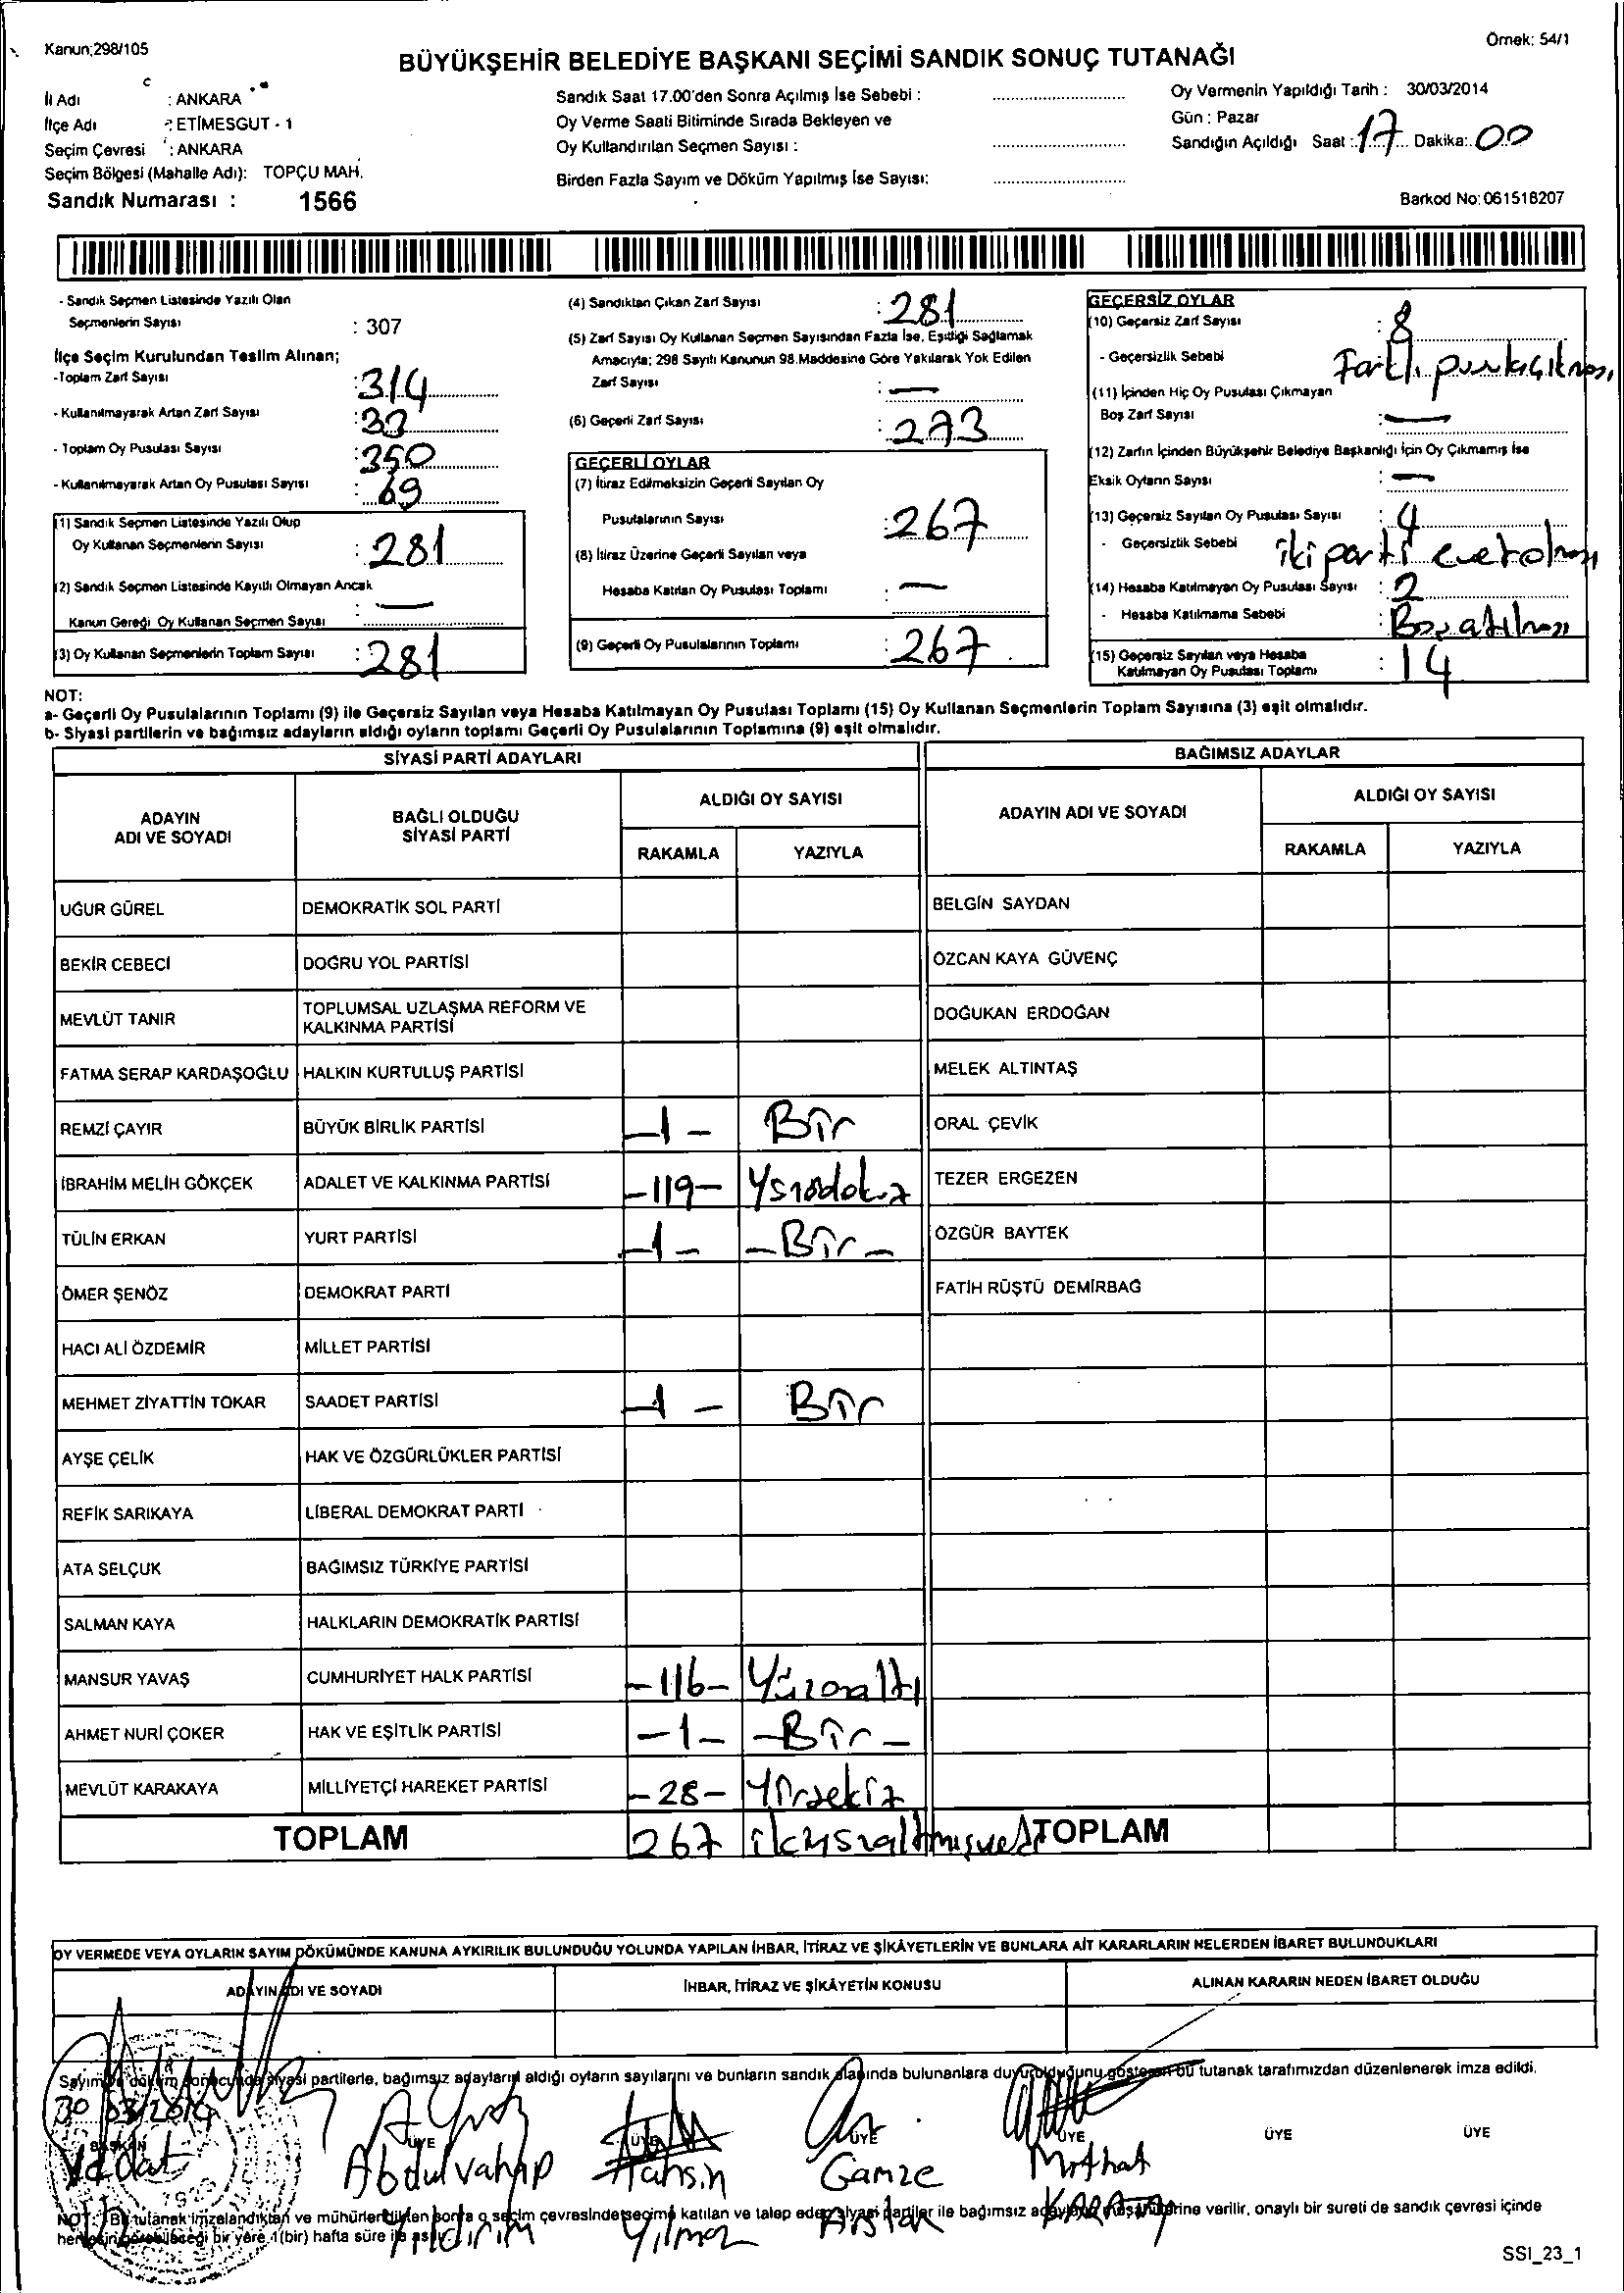 Kanun;298/105
Örnek: 54/1
BÜYÜKŞEHİR BELEDİYE BAŞKANI SEÇİMİ SANDIK SONUÇ TUTANAĞI
İl Adı : ANKARA
İlçe Adı : ETİMESGUT - 1
Seçim Çevresi : ANKARA
Seçim Bölgesi (Mahalle Adı): TOPÇU MAH.
Sandık Numarası : 1566
Sandık Saat 17.00'den Sonra Açılmış İse Sebebi :
Oy Verme Saati Bitiminde Sırada Bekleyen ve
Oy Kullandırılan Seçmen Sayısı :
Birden Fazla Sayım ve Döküm Yapılmış İse Sayısı:
Oy Vermenin Yapıldığı Tarih : 30/03/2014
Gün : Pazar
Sandığın Açıldığı Saat : 17 Dakika: 00
Barkod No: 061518207
- Sandık Seçmen Listesinde Yazılı Olan
Seçmenlerin Sayısı : 307
İlçe Seçim Kurulundan Teslim Alınan;
-Toplam Zarf Sayısı : 314
- Kullanılmayarak Artan Zarf Sayısı : 33
- Toplam Oy Pusulası Sayısı : 350
- Kullanılmayarak Artan Oy Pusulası Sayısı : 69
(1) Sandık Seçmen Listesinde Yazılı Olup
Oy Kullanan Seçmenlerin Sayısı : 281
(2) Sandık Seçmen Listesinde Kayıtlı Olmayan Ancak
Kanun Gereği Oy Kullanan Seçmen Sayısı : —
(3) Oy Kullanan Seçmenlerin Toplam Sayısı : 281
(4) Sandıktan Çıkan Zarf Sayısı : 281
(5) Zarf Sayısı Oy Kullanan Seçmen Sayısından Fazla İse, Eşitliği Sağlamak
Amacıyla; 298 Sayılı Kanunun 98.Maddesine Göre Yakılarak Yok Edilen
Zarf Sayısı : —
(6) Geçerli Zarf Sayısı : 273
GEÇERLİ OYLAR
(7) İtiraz Edilmeksizin Geçerli Sayılan Oy
Pusulalarının Sayısı : 267
(8) İtiraz Üzerine Geçerli Sayılan veya
Hesaba Katılan Oy Pusulası Toplamı : —
(9) Geçerli Oy Pusulalarının Toplamı : 267
GEÇERSİZ OYLAR
(10) Geçersiz Zarf Sayısı : 8
- Geçersizlik Sebebi Farklı
(11) İçinden Hiç Oy Pusulası Çıkmayan
Boş Zarf Sayısı : —
(12) Zarfın İçinden Büyükşehir Belediye Başkanlığı İçin Oy Çıkmamış İse
Eksik Oyların Sayısı : —
(13) Geçersiz Sayılan Oy Pusulası Sayısı : 4
- Geçersizlik Sebebi iki parti evet olması
(14) Hesaba Katılmayan Oy Pusulası Sayısı : 2
- Hesaba Katılmama Sebebi : Boş atılması
(15) Geçersiz Sayılan veya Hesaba
Katılmayan Oy Pusulası Toplamı : 14
NOT:
a- Geçerli Oy Pusulalarının Toplamı (9) ile Geçersiz Sayılan veya Hesaba Katılmayan Oy Pusulası Toplamı (15) Oy Kullanan Seçmenlerin Toplam Sayısına (3) eşit olmalıdır.
b- Siyasi partilerin ve bağımsız adayların aldığı oyların toplamı Geçerli Oy Pusulalarının Toplamına (9) eşit olmalıdır.
SİYASİ PARTİ ADAYLARI
BAĞIMSIZ ADAYLAR
ADAYIN
ADI VE SOYADI
BAĞLI OLDUĞU
SİYASİ PARTİ
ALDIĞI OY SAYISI
RAKAMLA YAZIYLA
ADAYIN ADI VE SOYADI
ALDIĞI OY SAYISI
RAKAMLA YAZIYLA
UĞUR GÜREL DEMOKRATİK SOL PARTİ BELGİN SAYDAN
BEKİR CEBECİ DOĞRU YOL PARTİSİ ÖZCAN KAYA GÜVENÇ
MEVLÜT TANIR TOPLUMSAL UZLAŞMA REFORM VE
KALKINMA PARTİSİ DOĞUKAN ERDOĞAN
FATMA SERAP KARDAŞOĞLU HALKIN KURTULUŞ PARTİSİ MELEK ALTINTAŞ
REMZİ ÇAYIR BÜYÜK BİRLİK PARTİSİ -1- Bir ORAL ÇEVİK
İBRAHİM MELİH GÖKÇEK ADALET VE KALKINMA PARTİSİ -119- TEZER ERGEZEN
TÜLİN ERKAN YURT PARTİSİ -1- -Bir- ÖZGÜR BAYTEK
ÖMER ŞENÖZ DEMOKRAT PARTİ FATİH RÜŞTÜ DEMİRBAĞ
HACI ALİ ÖZDEMİR MİLLET PARTİSİ
MEHMET ZİYATTİN TOKAR SAADET PARTİSİ -1- Bir
AYŞE ÇELİK HAK VE ÖZGÜRLÜKLER PARTİSİ
REFİK SARIKAYA LİBERAL DEMOKRAT PARTİ
ATA SELÇUK BAĞIMSIZ TÜRKİYE PARTİSİ
SALMAN KAYA HALKLARIN DEMOKRATİK PARTİSİ
MANSUR YAVAŞ CUMHURİYET HALK PARTİSİ -116- Yüzonaltı
AHMET NURİ ÇOKER HAK VE EŞİTLİK PARTİSİ -1- -Bir-
MEVLÜT KARAKAYA MİLLİYETÇİ HAREKET PARTİSİ -28-
TOPLAM 267 TOPLAM
OY VERMEDE VEYA OYLARIN SAYIM DÖKÜMÜNDE KANUNA AYKIRILIK BULUNDUĞU YOLUNDA YAPILAN İHBAR, İTİRAZ VE ŞİKÂYETLERİN VE BUNLARA AİT KARARLARIN NELERDEN İBARET BULUNDUKLARI
ADAYIN ADI VE SOYADI İHBAR, İTİRAZ VE ŞİKÂYETİN KONUSU ALINAN KARARIN NEDEN İBARET OLDUĞU
Sayım ve döküm sonucunda siyasi partilerle, bağımsız adayların aldığı oyların sayılarını ve bunların sandık alanında bulunanlara duyurulduğunu gösteren bu tutanak tarafımızdan düzenlenerek imza edildi.
30/03/2014
BAŞKAN ÜYE ÜYE ÜYE ÜYE ÜYE ÜYE
Vedat Abdulvahap Tahsin Gamze Mithat
Yıldırım Yılmaz Arslan
NOT: Bu tutanak imzalandıktan ve mühürlendikten sonra o seçim çevresinde seçime katılan ve talep eden siyasi partiler ile bağımsız aday müşahitlerine verilir, onaylı bir sureti de sandık çevresi içinde
herkesin görebileceği bir yere 1(bir) hafta süre ile asılır.
SSI_23_1